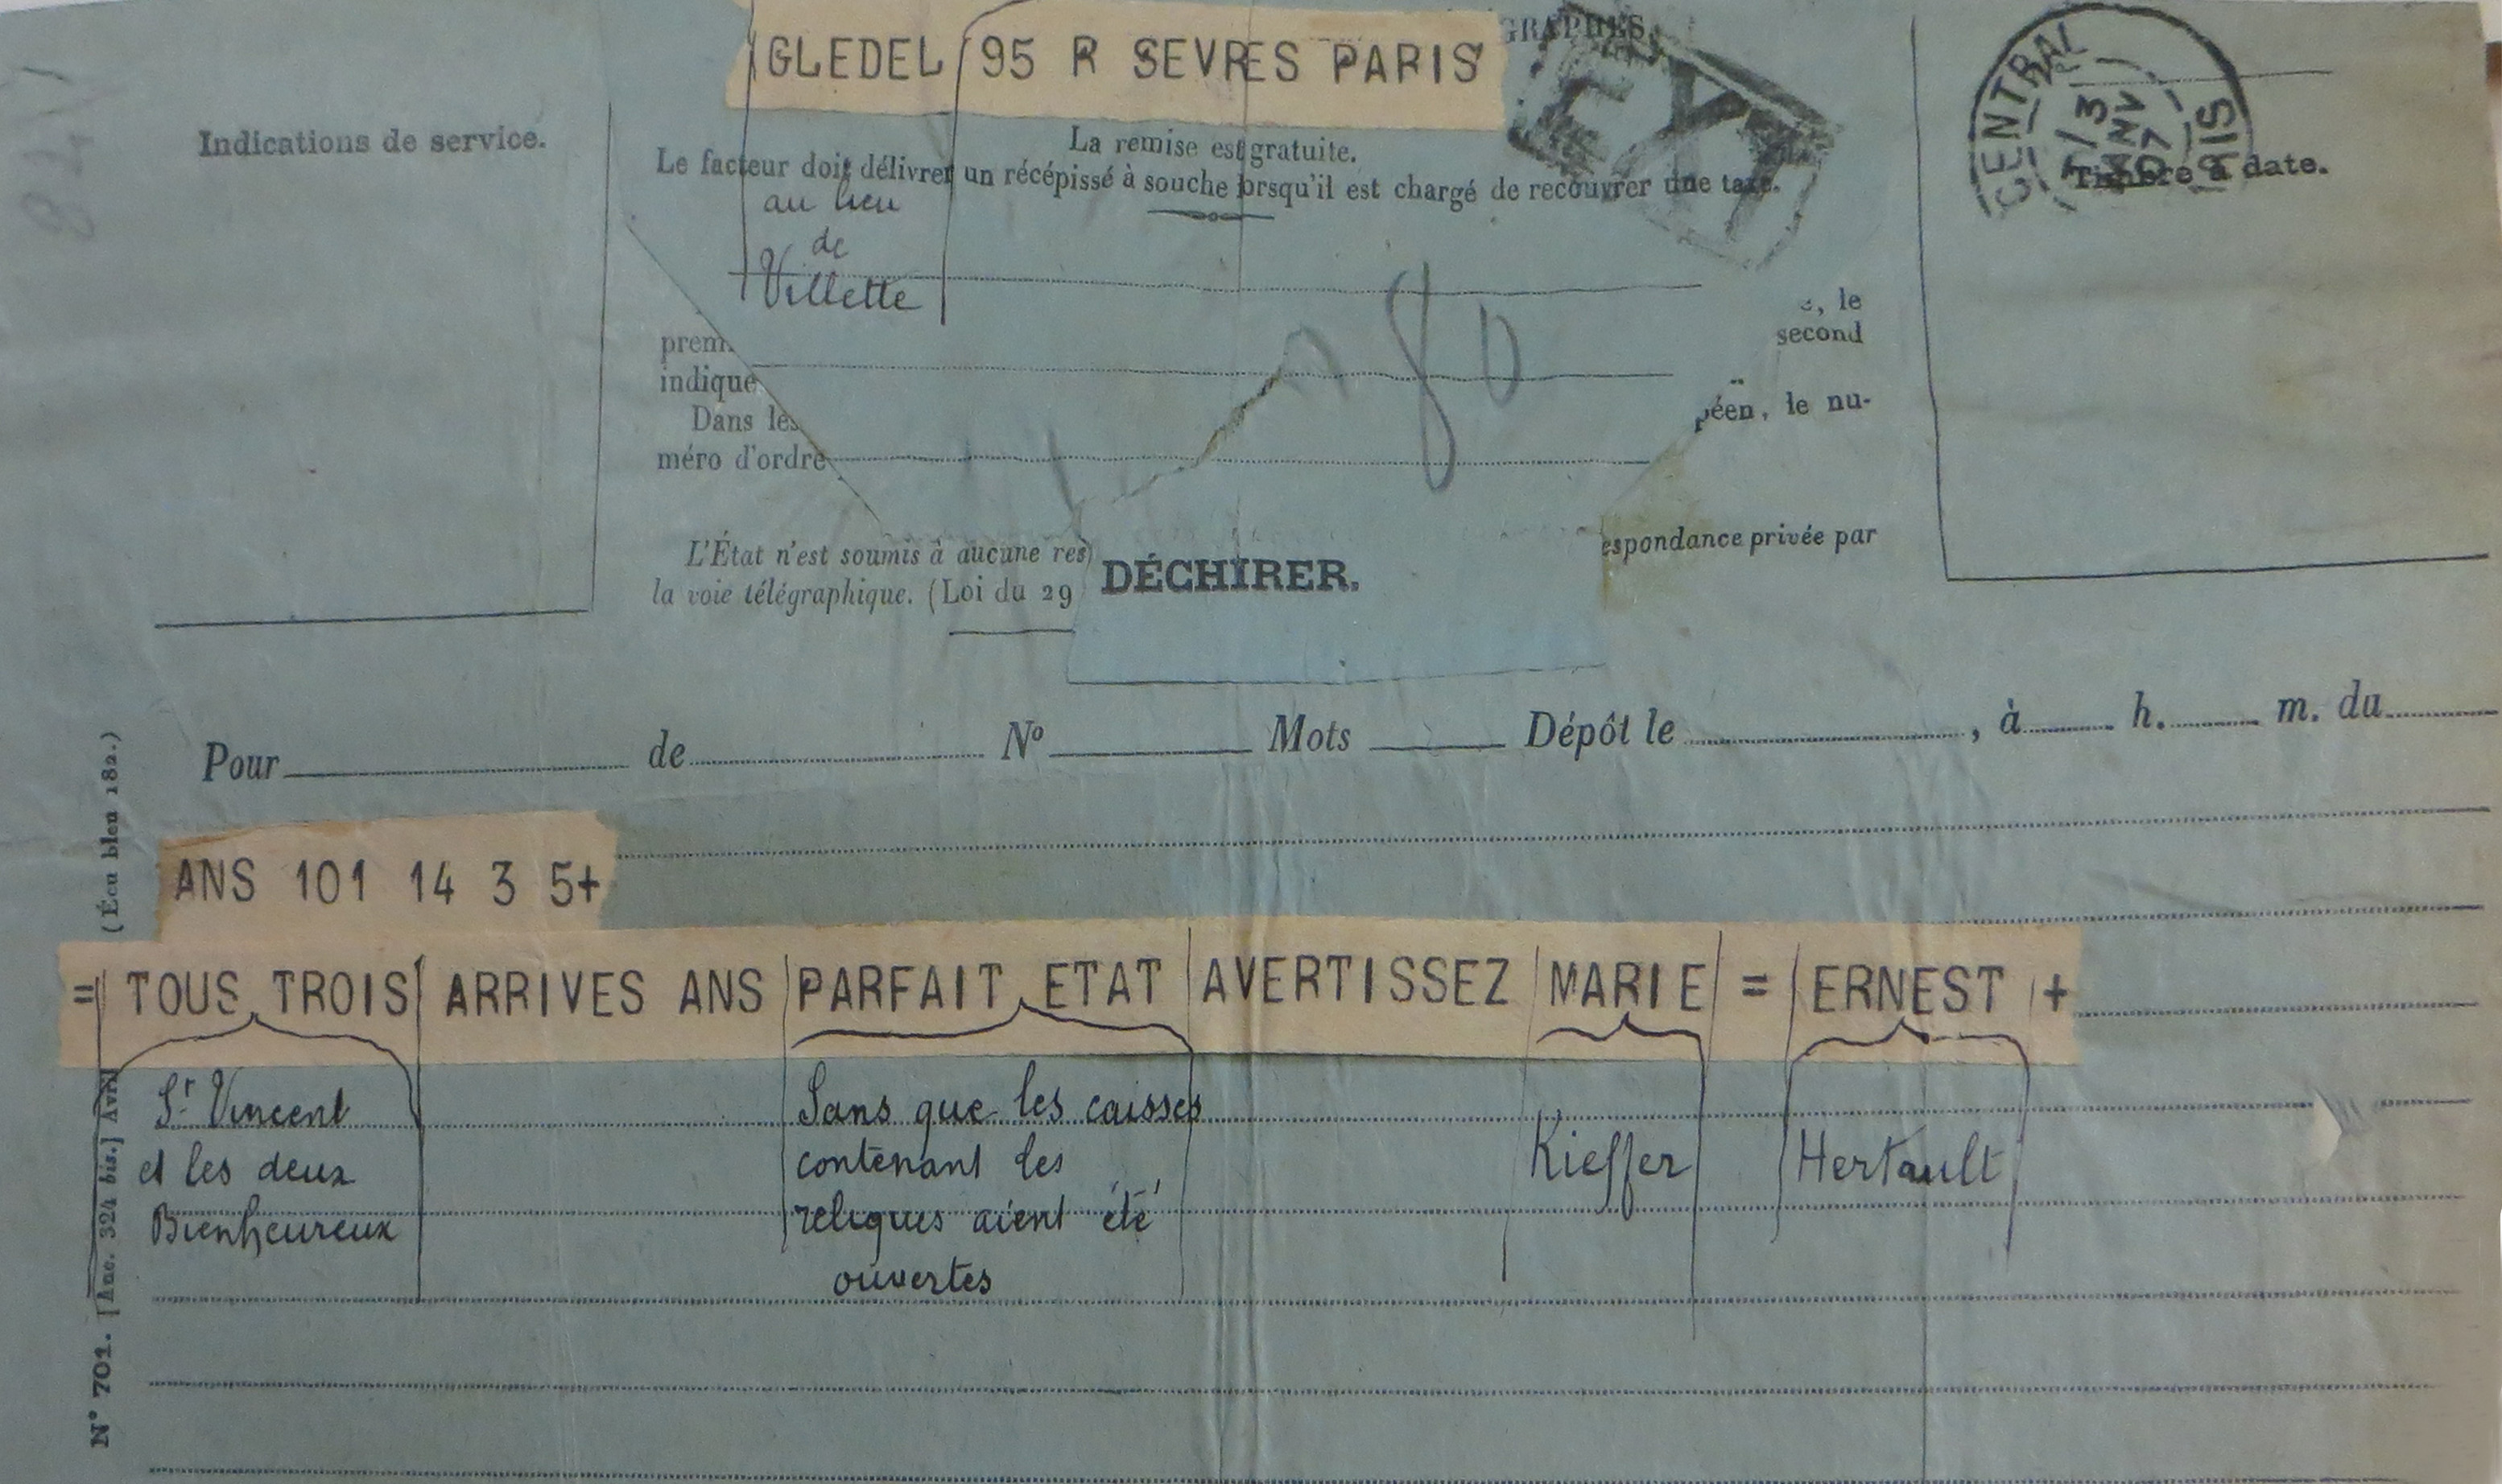 GLEDEL 95 R SEVRES PARIS
GRAPHES.
EXT
CENTRAL
3
PARIS
Indications de service.
La remise est gratuite.
Le facteur doit délivrer un récépissé à souche lorsqu'il est chargé de recouvrer une taxe.
Timbre à date.
au lieu
de
Villette
, le
prem
second
indique
80
Dans les
péen, le nu-
méro d'ordre
L'État n'est soumis à aucune res
espondance privée par
la voie télégraphique. (Loi du 29
DÉCHIRER.
Pour de No Mots Dépôt le , à h. m. du
ANS 101 14 3 5+
= TOUS TROIS ARRIVES ANS PARFAIT ETAT AVERTISSEZ MARIE = ERNEST +
St Vincent
et les deux
Bienheureux
Sans que les caisses
contenant les
reliques aient été
ouvertes
Kieffer
Hertault
N° 701. [Anc. 324 bis.] Avril (Écu bleu 182.)